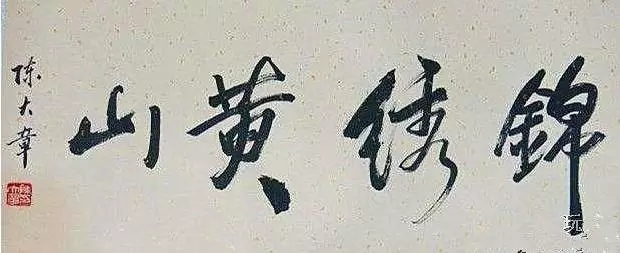 錦绣黄山
陈大章
玩